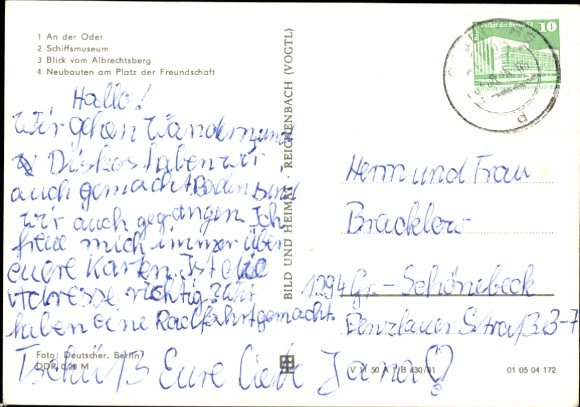 1 An der Oder
2 Schiffsmuseum
3 Blick vom Albrechtsberg
4 Neubauten am Platz der Freundschaft
Hallo!
Wir gehen Wandern, und
Diskos haben wir
auch gemacht. Baden sind
wir auch gegangen. Ich
freue mich immer über
euere Karten. Ist die
Adresse richtig? Wir
haben eine Radfahrt gemacht.
Tschüß Eure liebe Jana
Foto: Deutscher, Berlin
DDR 0,20 M
BILD UND HEIMAT · REICHENBACH (VOGTL)
V 11 50 A 1/B 430/81
01 05 04 172
10
Herrn und Frau
Brackler
1294 Gr.-Schönebeck
Penzlauer Straße 3-7